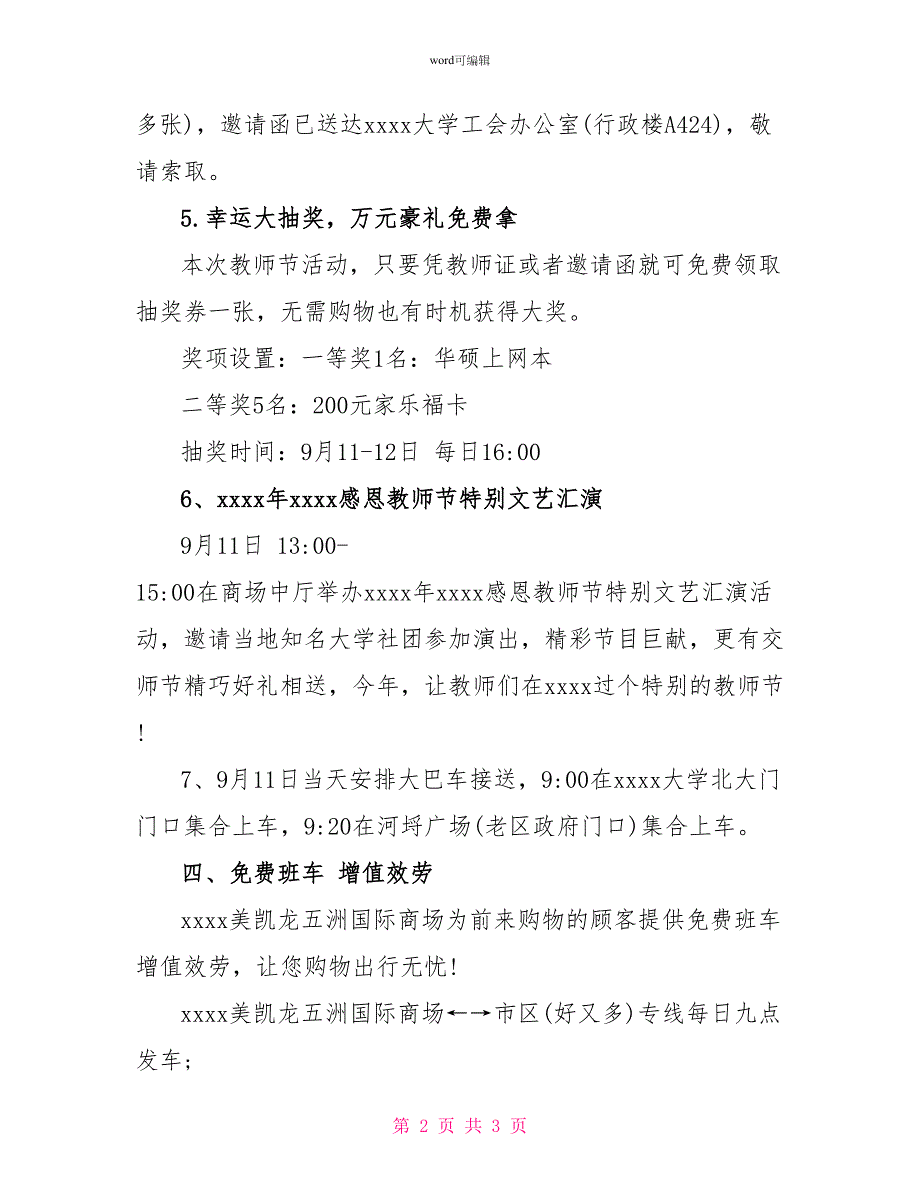 word可编辑
多张)，邀请函已送达xxxx大学工会办公室(行政楼A424)，敬
请索取。
5.幸运大抽奖，万元豪礼免费拿
本次教师节活动，只要凭教师证或者邀请函就可免费领取
抽奖券一张，无需购物也有时机获得大奖。
奖项设置：一等奖1名：华硕上网本
二等奖5名：200元家乐福卡
抽奖时间：9月11-12日 每日16:00
6、xxxx年xxxx感恩教师节特别文艺汇演
9月11日 13:00-
15:00在商场中厅举办xxxx年xxxx感恩教师节特别文艺汇演活
动，邀请当地知名大学社团参加演出，精彩节目巨献，更有交
师节精巧好礼相送，今年，让教师们在xxxx过个特别的教师节
!
7、9月11日当天安排大巴车接送，9:00在xxxx大学北大门
门口集合上车，9:20在河埒广场(老区政府门口)集合上车。
四、免费班车 增值效劳
xxxx美凯龙五洲国际商场为前来购物的顾客提供免费班车
增值效劳，让您购物出行无忧!
xxxx美凯龙五洲国际商场←→市区(好又多)专线每日九点
发车;
第 2 页 共 3 页